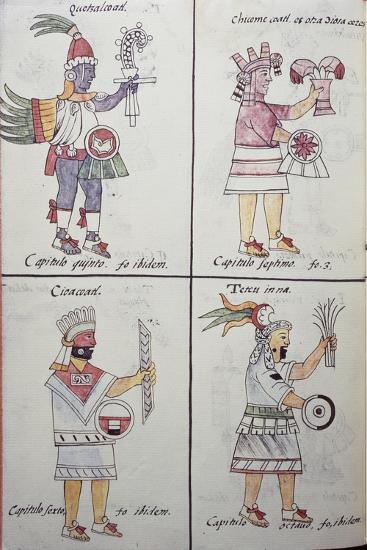 Quetzalcoatl.
Capitulo quinto. fo ibidem.
Chicome coatl. es otra Diosa ceres
Capitulo septimo. fo. 3.
Cioacoatl.
Capitulo sexto, fo ibidem.
Teteu inna.
Capitulo octauo, fo, ibidem.